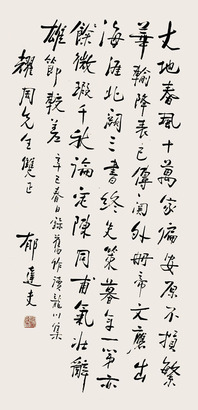 大地春風十萬家偏安原不損繁
華輸降表已傳關外冊帝文應出
海涯北闕三書終失策暮年一第亦
餘微瑕千秋論定陳同甫氣壯辭
雄節較差 辛巳春日錄舊作讀龍川集
耀周先生雙正
郁達夫